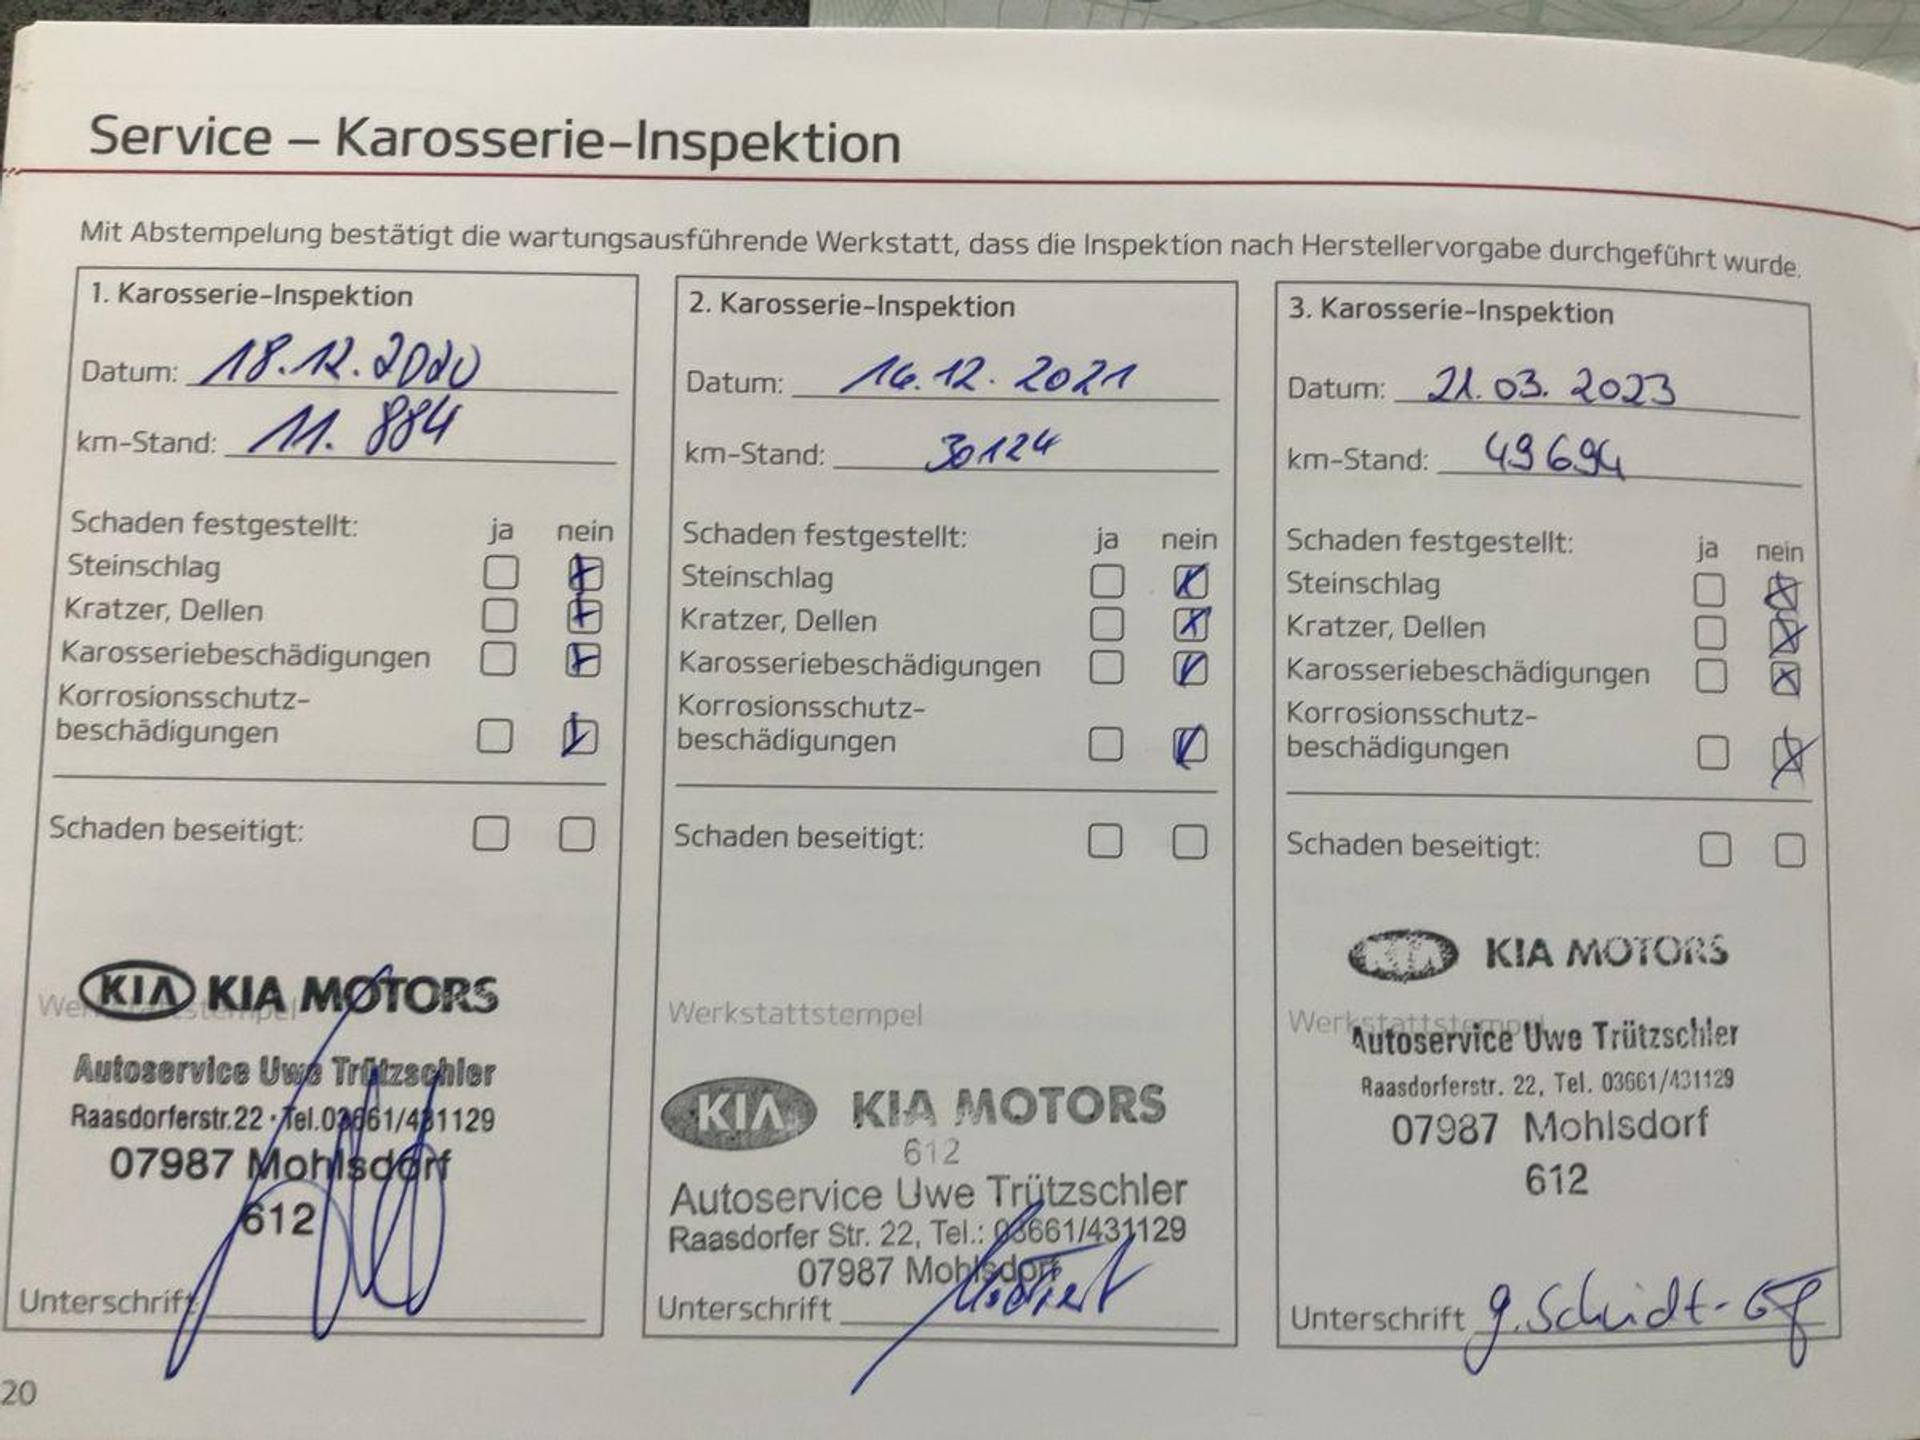 Service – Karosserie-Inspektion
Mit Abstempelung bestätigt die wartungsausführende Werkstatt, dass die Inspektion nach Herstellervorgabe durchgeführt wurde.
1. Karosserie-Inspektion
Datum: 18.12.2020
km-Stand: 11.884
Schaden festgestellt: ja nein
Steinschlag
Kratzer, Dellen
Karosseriebeschädigungen
Korrosionsschutz-
beschädigungen
Schaden beseitigt:
Werkstattstempel
KIA KIA MOTORS
Autoservice Uwe Trützschler
Raasdorferstr.22 · Tel.03661/431129
07987 Mohlsdorf
612
Unterschrift
2. Karosserie-Inspektion
Datum: 16.12.2021
km-Stand: 30124
Schaden festgestellt: ja nein
Steinschlag
Kratzer, Dellen
Karosseriebeschädigungen
Korrosionsschutz-
beschädigungen
Schaden beseitigt:
Werkstattstempel
KIA KIA MOTORS
612
Autoservice Uwe Trützschler
Raasdorfer Str. 22, Tel.: 03661/431129
07987 Mohlsdorf
Unterschrift
3. Karosserie-Inspektion
Datum: 21.03.2023
km-Stand: 49694
Schaden festgestellt: ja nein
Steinschlag
Kratzer, Dellen
Karosseriebeschädigungen
Korrosionsschutz-
beschädigungen
Schaden beseitigt:
KIA KIA MOTORS
Werkstattstempel
Autoservice Uwe Trützschler
Raasdorferstr. 22, Tel. 03661/431129
07987 Mohlsdorf
612
Unterschrift
20